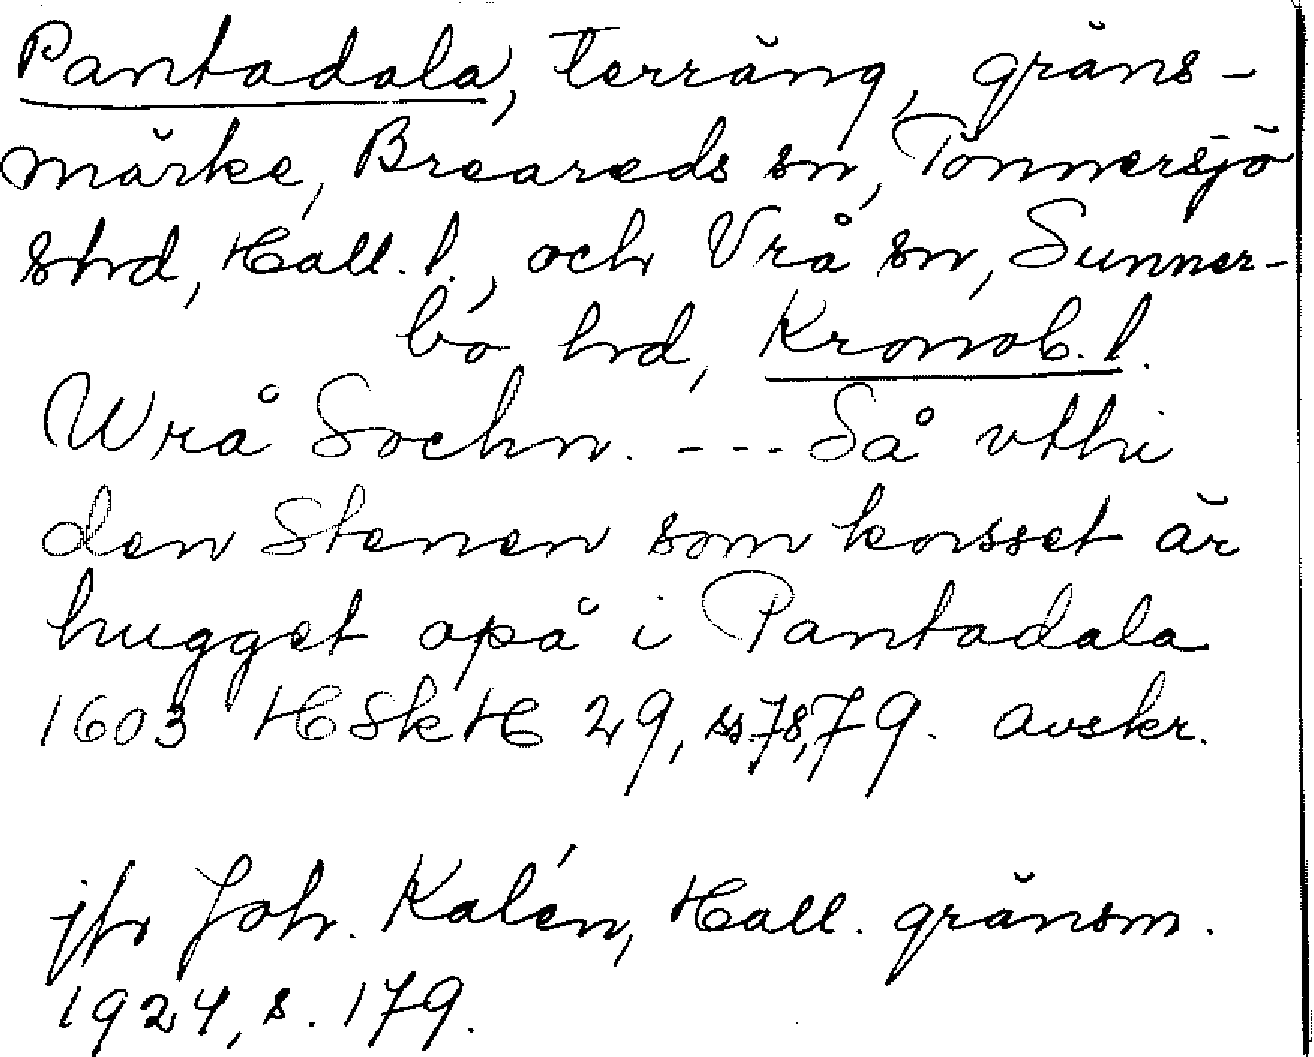 Pantadala, terräng, gräns-
märke, Breareds sn, Tönnersjö
shrd, Hall. l., och Vrå sn, Sunner-
bo hrd, Kronob. l.
Wrå Sochn. --- Så vthi
den Stenen som korsset är
hugget opå i Pantadala
1603 HSkH 29, ss. 78, 79. avskr.
jfr Joh. Kalén, Hall. gränsm.
1924, s. 179.